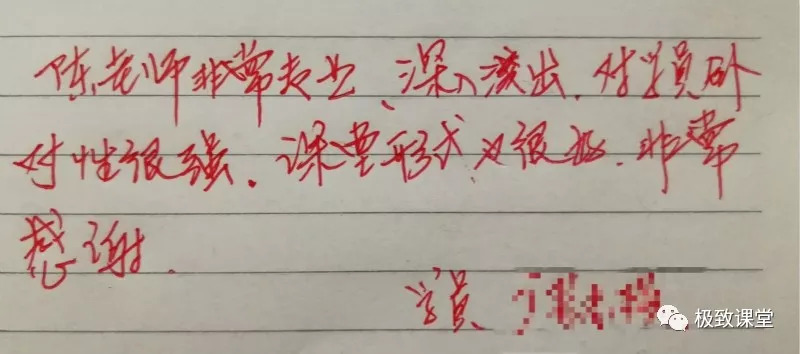 陈老师非常专业、深入浅出,对学员针
对性很强,课堂形式也很好,非常
感谢.
学员
极致课堂